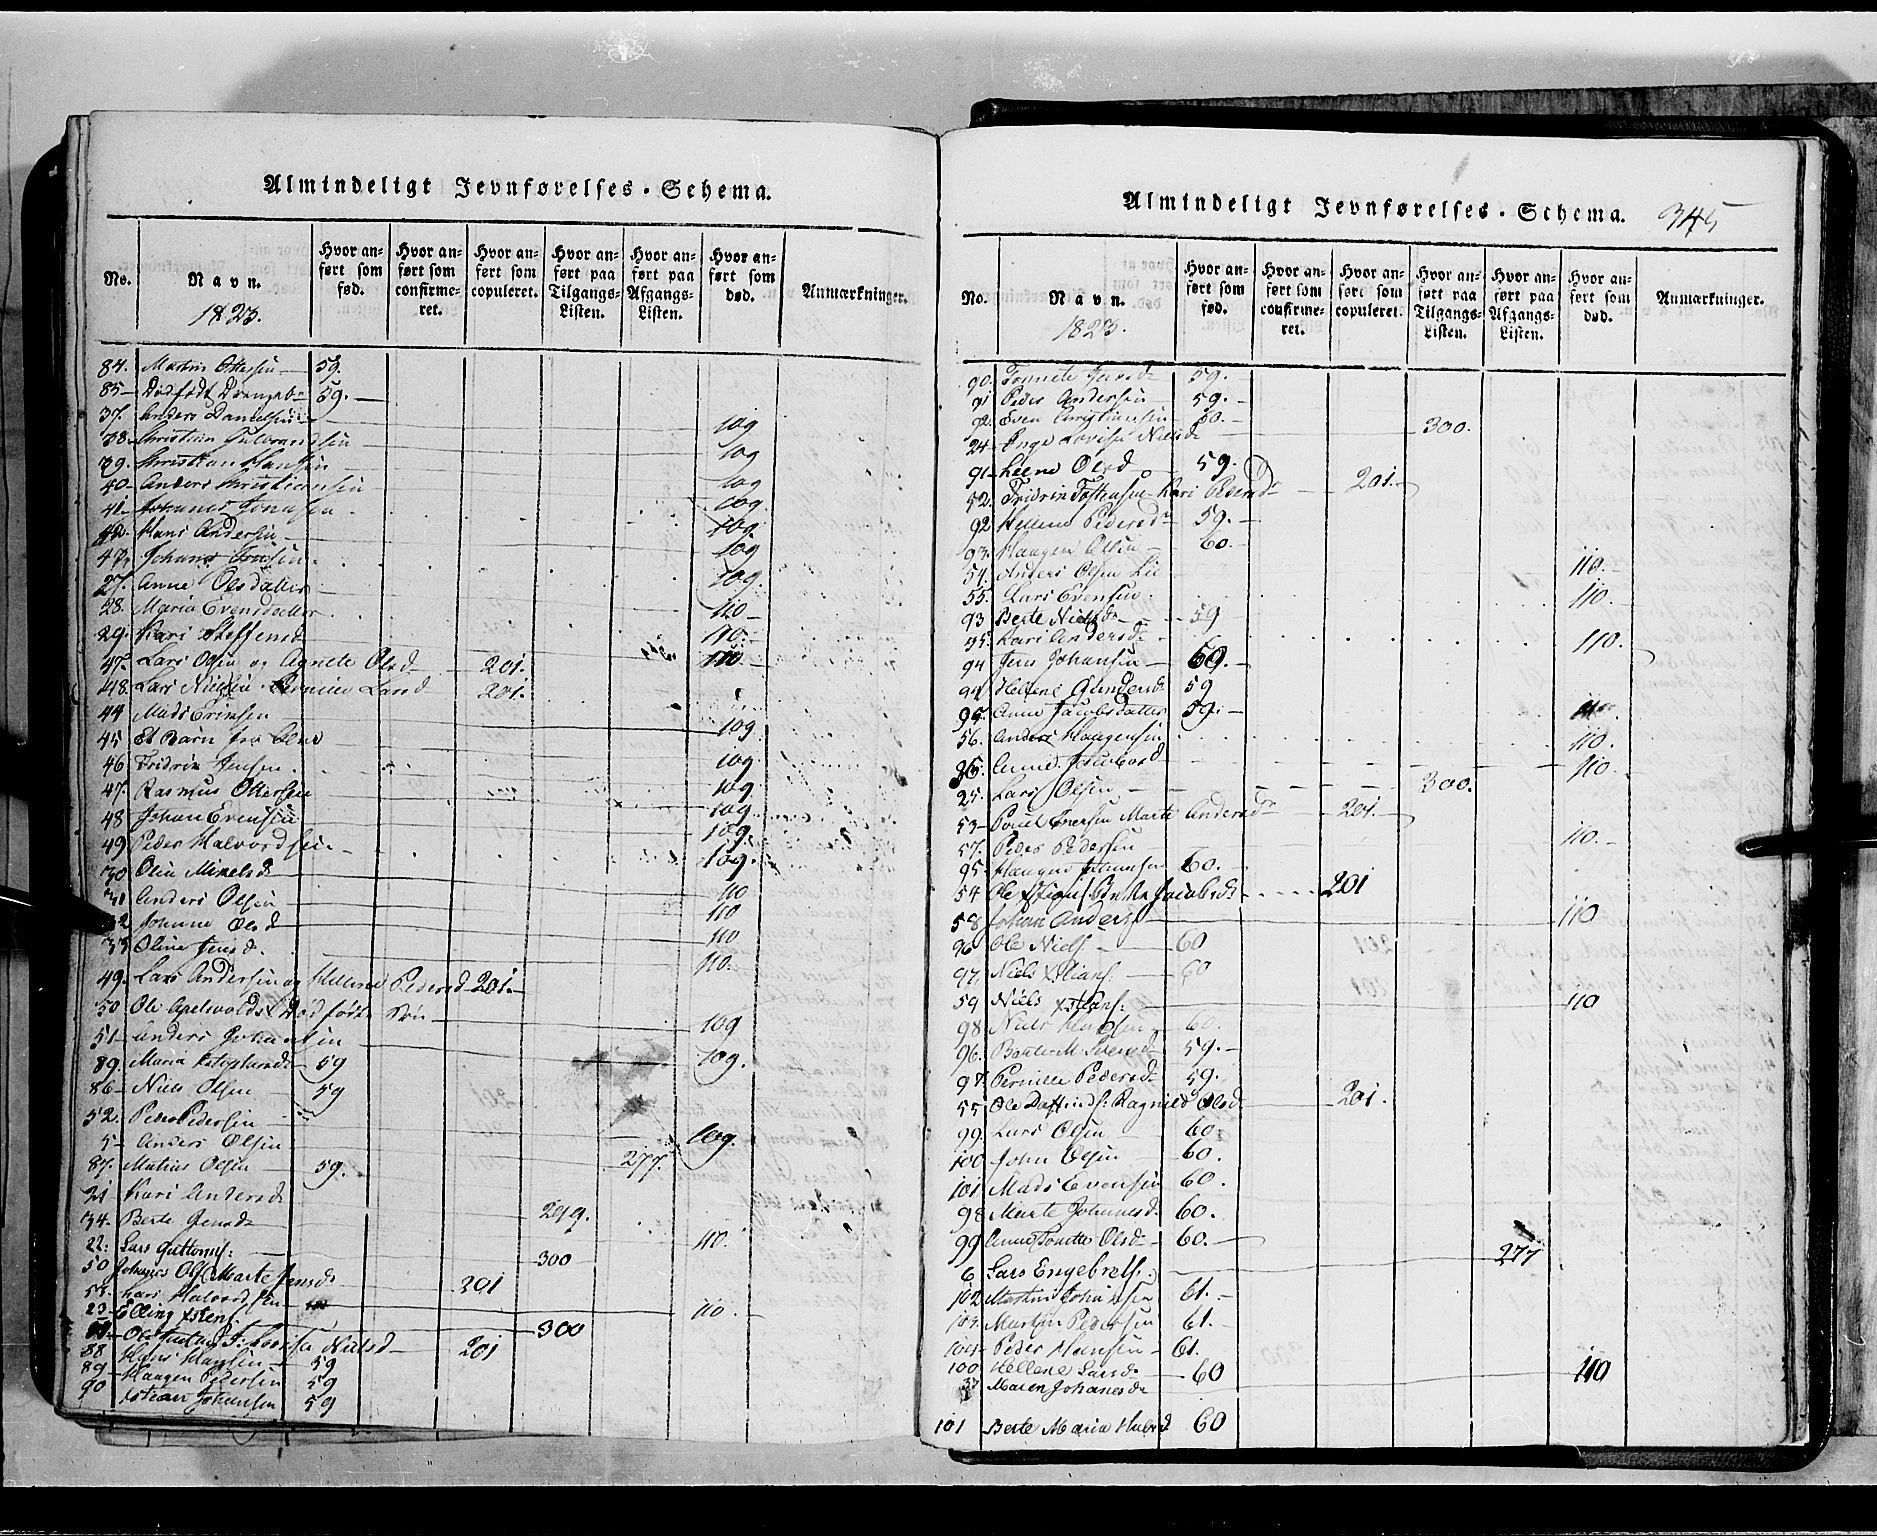 Almindeligt Jevnførelses-Schema.
No. Navn. 1823. Hvor anført som fød. Hvor anført som confirmeret. Hvor anført som copuleret. Hvor anført paa Tilgangs-Listen. Hvor anført paa Afgangs-Listen. Hvor anført som død. Anmærkninger.
84. Martin Ottersen 59.
85 Dødfødt Drengeb. 59.
37. Anders Danielsen 109
38. Christian Gulbrandsen 109
39. Christian Hansen 109
40 Anders Christiansen 109
41 Johanes Jonasen 109
42. Hans Andersen 109
43. Johans 109
27. Anne Olsdatter 110
28. Maria Evensdatter 110.
29. Kari Steffensd 110
47. Lars Olsen og Agnete Olsd 201.
48. Lars Nielsen Pernille Larsd 201.
44 Mads Ericsen 109
45 Et Barn 109
46 Fridrik Jensen 109
47. Rasmus Ottersen 109
48 Johan Evensen 109
49 Peder Halvordsen 109.
30 Oline Mikelsd 110
31 Anders Olsen 110
32 Johanne Olsd 110
33 Oline Jensd. 110.
49. Lars Andersen og Hellene Pedersd 201.
50 Ole Apelsvolds Dødfødte Søn 109
51 Anders Johansen 109.
89. Maria 59
86 Niels Olsen 59
52. Peder Pedersen 109.
5 Anders Olsen 277.
87. Matias Olsen 59.
21 Kari Andersd 299.
34. Berte Jensd 110.
22: Lars Guttormsf: 300
50 Johanes Olsf Marte Jensd 201
53. Lars Halvordsen 110.
23 Elling xstens. 300
Nielsd 201
88 Hans Hansen 59
89 Haagen Pedersen 59
90 xstian Johansen 59
Almindeligt Jevnførelses-Schema. 345
No. Navn. 1823. Hvor anført som fød. Hvor anført som confirmeret. Hvor anført som copuleret. Hvor anført paa Tilgangs-Listen. Hvor anført paa Afgangs-Listen. Hvor anført som død. Anmærkninger.
90. Tonnete 59.
91 Peder Andersen 59.
92. Even Christiansen 60.
24 Inge Lovise Nielsd 300.
91 Leene Olsd 59.
52. Fridrik Tostensen Kari Pedersd 201.
92 Hellene Pedersd 59.
93. Haagen Olsen 60.
54. Anders Olsen Lie 110.
55. Lars Evensen 110.
93 Berte Nielsd 59
35. Kari Andersd 110.
94 Jens Johansen 60.
94 Hellene Gundersd 59
95. Anne Jacobsdatter 59.
56. Anders Haagensen 110.
36. Anne 110.
25. Lars Olsen 300.
53 Poul Iversen Marte Andersd 201.
57. Peder Pedersen 110.
95. Haagen Johansen 60.
54 Ole Jacobsd 201
58 Johan Andersf 110
96 Ole Nielsf 60
97. Niels xstians. 60
59 Niels xstians. 110
98 Niels Hansen 60.
96. M. Pedersd 59.
97. Pernille Pedersd 59.
55 Ole Ragnild Olsd 201.
99. Lars Olsen 60.
100 John Olsen 60.
101. Mads Evensen 60.
98 Marte Johannesd 60.
99 Anne Olsd 60.
6. Lars Engebretsf. 277
102 Martin Johansen 61.
103. Martin Pedersen 61.
104 Peder Hansen 61.
100 Hellene Larsd 60
37 Maren Johanesd 110
101 Berte Maria Halvsd 60